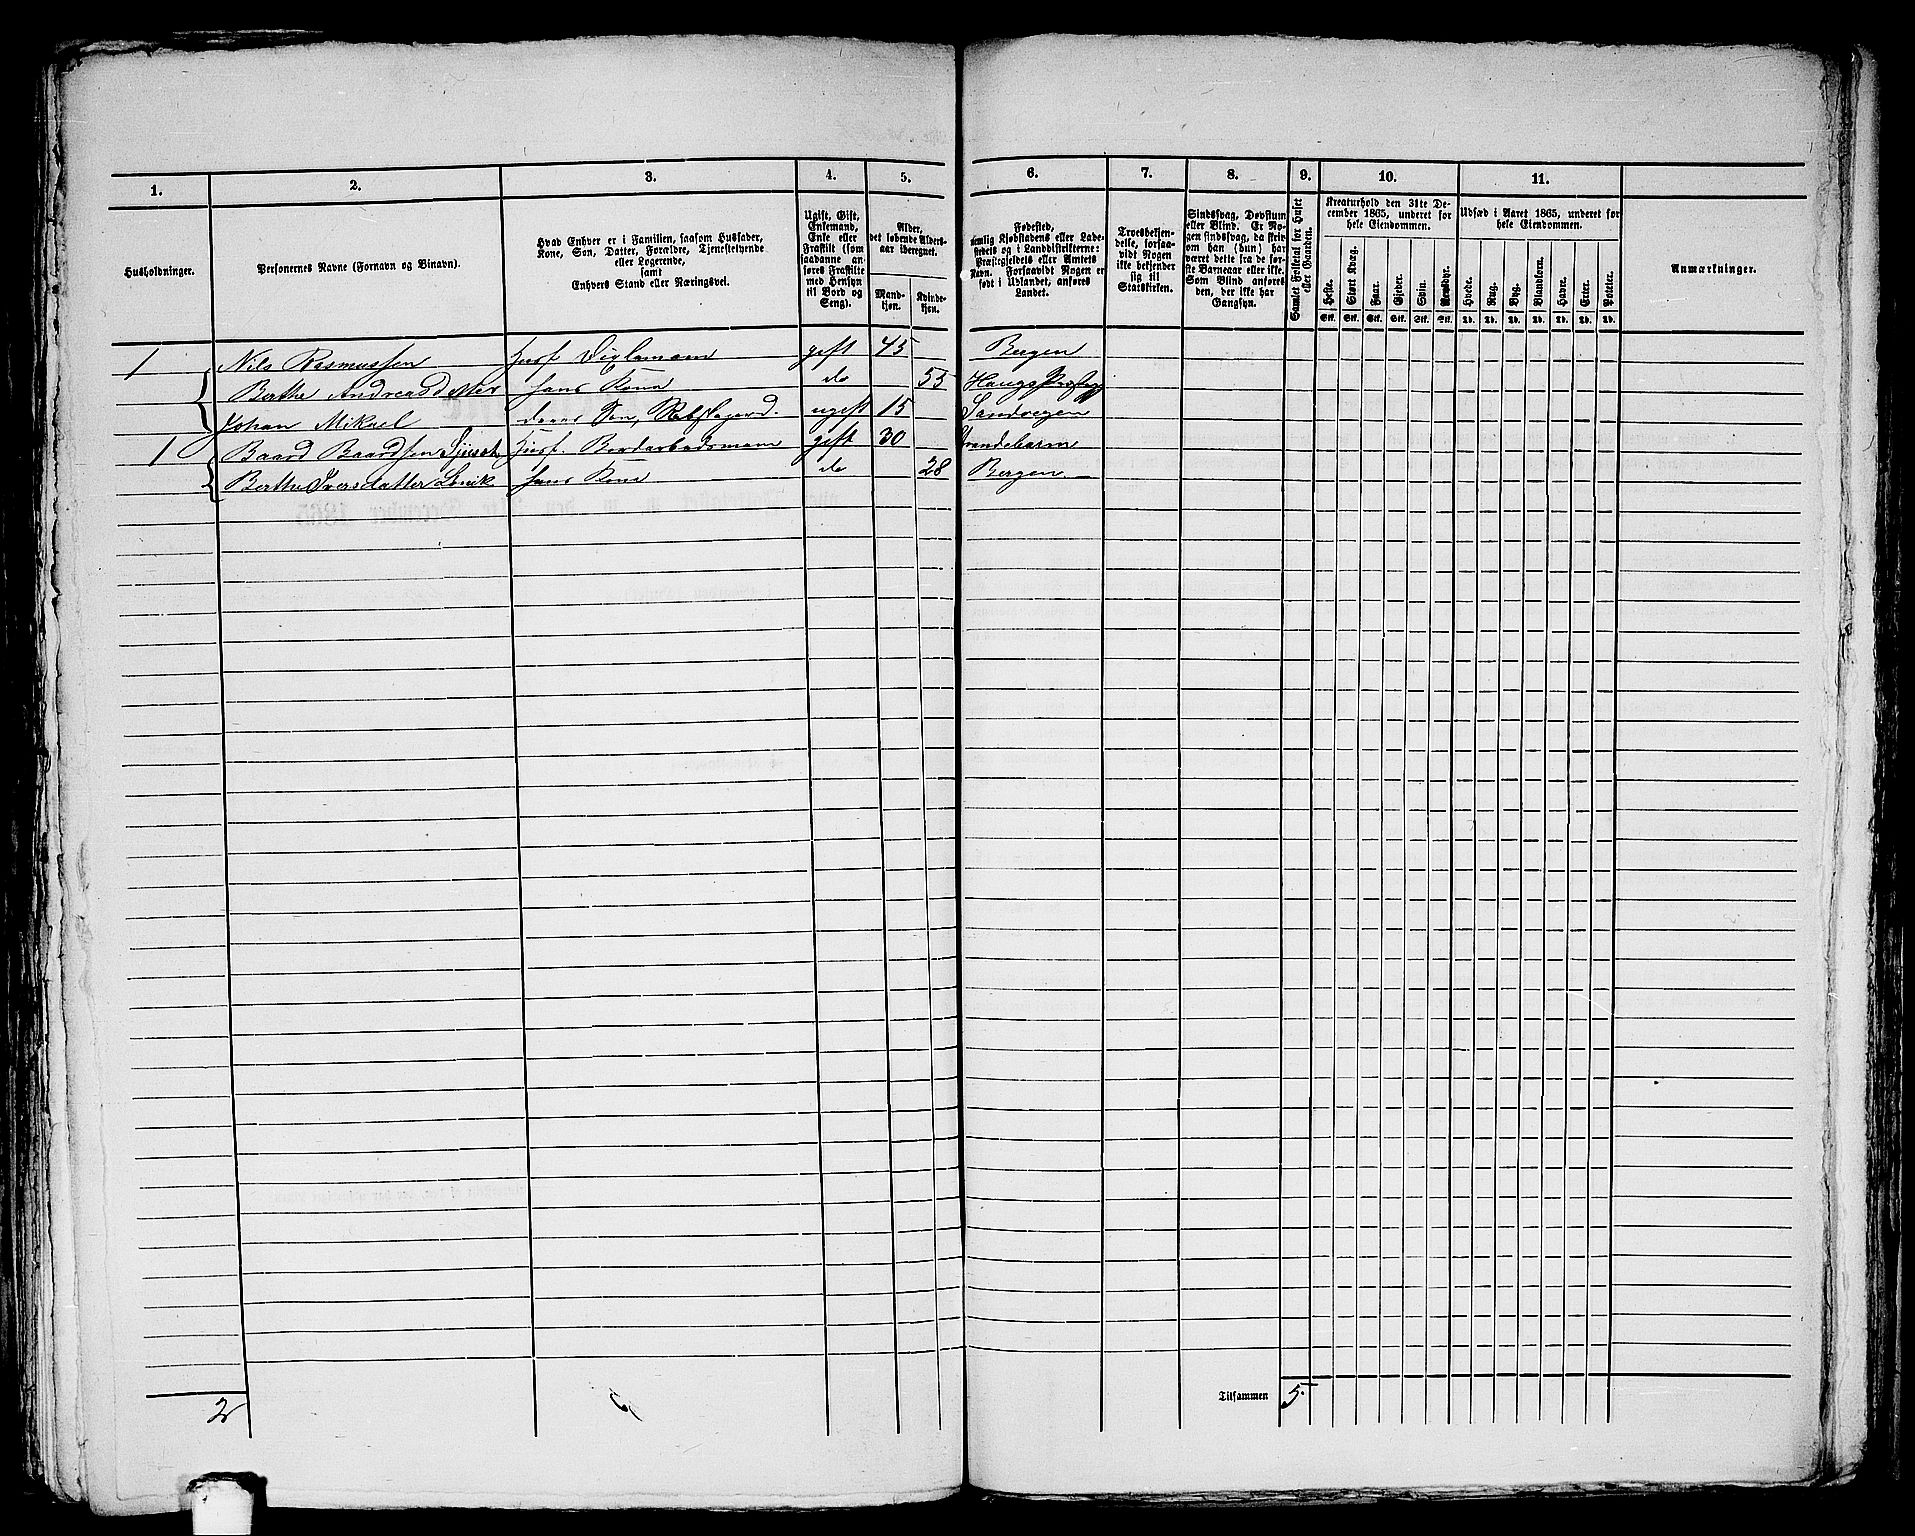 1. 2. 3. 4. 5. 6. 7. 8. 9. 10. 11.
Husholdninger.
Personernes Navne (Fornavn og Binavn).
Hvad Enhver er i Familien, saasom Husfader,
Kone, Søn, Datter, Forældre, Tjenestetyende
eller Logerende,
samt
Enhvers Stand eller Næringsvei.
Ugift, Gift,
Enkemand,
Enke eller
Fraskilt (som
saadanne an-
føres Fraskilte
med Hensyn
til Bord og
Seng).
Alder,
det løbende Alders-
aar iberegnet.
Mand-
kjøn.
Kvinde-
kjøn.
Fødested,
nemlig Kjøbstadens eller Lade-
stedets og i Landdistrikterne:
Præstegjeldets eller Amtets
Navn. Forsaavidt Nogen er
født i Udlandet, anføres
Landet.
Troesbekjen-
delse, forsaa-
vidt Nogen
ikke bekjender
sig til
Statskirken.
Sindssvag, Døvstum
eller Blind. Er No-
gen sindssvag, da skriv
om han (hun) har
været dette fra de før-
ste Barneaar eller ikke.
Som Blind anføres
den, der ikke har
Gangsyn.
Samlet Folketal for Huset
eller Gaarden.
Kreaturhold den 31te De-
cember 1865, underet for
hele Eiendommen.
Heste. Stort Kvæg. Faar. Gjeder. Svin. Rensdyr.
Stk. Stk. Stk. Stk. Stk. Stk.
Udsæd i Aaret 1865, underet for
hele Eiendommen.
Hvede. Rug. Byg. Blandkorn. Havre. Erter. Poteter.
Td. Td. Td. Td. Td. Td. Td.
Anmærkninger.
1 Nils Rasmussen Husf. gift 45 Bergen
Berthe Andreasdatter hans Kone do 55
Johan Mikael deres Søn, ugift 15
1 Baard Baardsen Husf. gift 30 Strandebarm
Berthe Iversdatter hans Kone do 28 Bergen
2
Tilsammen 5.